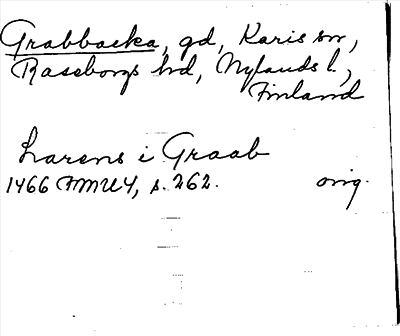 Grabbacka, gd, Karis sn,
Raseborgs hrd, Nylands l.,
Finland
Larens i Graab
1466 FMU 4, s. 262. orig.